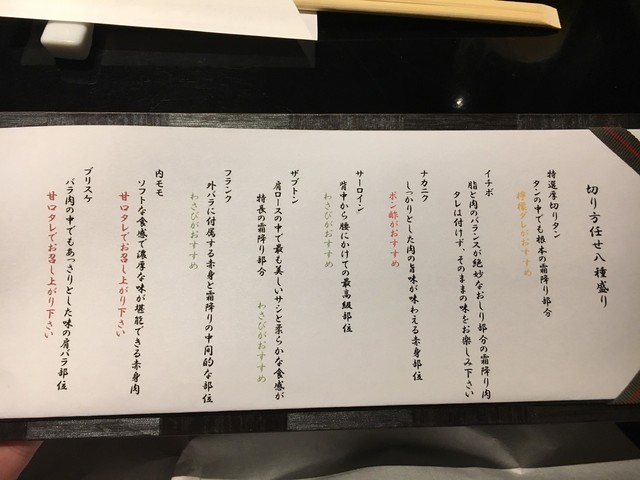 切り方任せ八種盛り
特選厚切りタン
タンの中でも根本の霜降り部分
檸檬ダレがおすすめ
イチボ
脂と肉のバランスが絶妙なおしり部分の霜降り肉
タレは付けず、そのままの味をお楽しみ下さい
ナカニク
しっかりとした肉の旨味が味わえる赤身部位
ポン酢がおすすめ
サーロイン
背中から腰にかけての最高級部位
わさびがおすすめ
ザブトン
肩ロースの中で最も美しいサシと柔らかな食感が
特長の霜降り部分 わさびがおすすめ
フランク
外バラに付属する赤身と霜降りの中間的な部位
わさびがおすすめ
内モモ
ソフトな食感で濃厚な味が堪能できる赤身肉
甘口タレでお召し上がり下さい
ブリスケ
バラ肉の中でもあっさりとした味の肩バラ部位
甘口タレでお召し上がり下さい